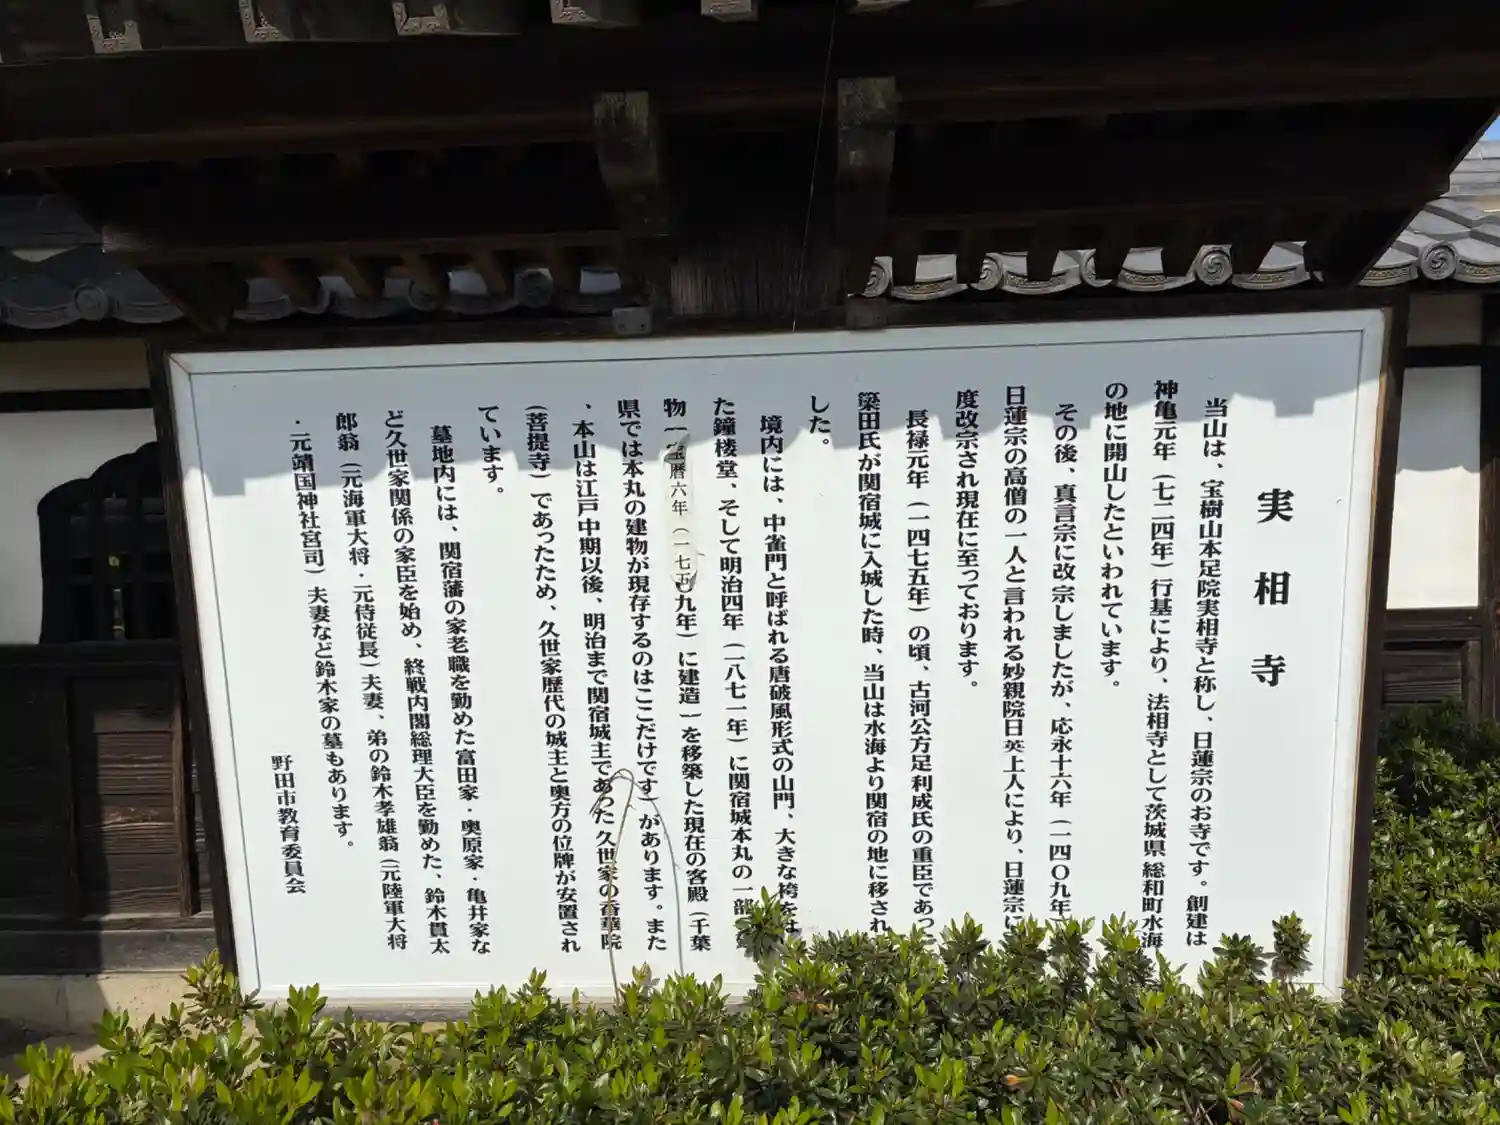 実相寺
当山は、宝樹山本足院実相寺と称し、日蓮宗のお寺です。創建は
神亀元年（七二四年）行基により、法相寺として茨城県総和町水海
の地に開山したといわれています。
その後、真言宗に改宗しましたが、応永十六年（一四〇九年
日蓮宗の高僧の一人と言われる妙親院日英上人により、日蓮宗に
度改宗され現在に至っております。
長禄元年（一四七五年）の頃、古河公方足利成氏の重臣であっ
簗田氏が関宿城に入城した時、当山は水海より関宿の地に移され
した。
境内には、中雀門と呼ばれる唐破風形式の山門、大きな袴をは
た鐘楼堂、そして明治四年（一八七一年）に関宿城本丸の一部
物（宝暦六年（一七五九年）に建造）を移築した現在の客殿（千葉
県では本丸の建物が現存するのはここだけです）があります。また
、本山は江戸中期以後、明治まで関宿城主であった久世家の香華院
（菩提寺）であったため、久世家歴代の城主と奥方の位牌が安置され
ています。
墓地内には、関宿藩の家老職を勤めた富田家・奥原家・亀井家な
ど久世家関係の家臣を始め、終戦内閣総理大臣を勤めた、鈴木貫太
郎翁（元海軍大将・元侍従長）夫妻、弟の鈴木孝雄翁（元陸軍大将
・元靖国神社宮司）夫妻など鈴木家の墓もあります。
野田市教育委員会